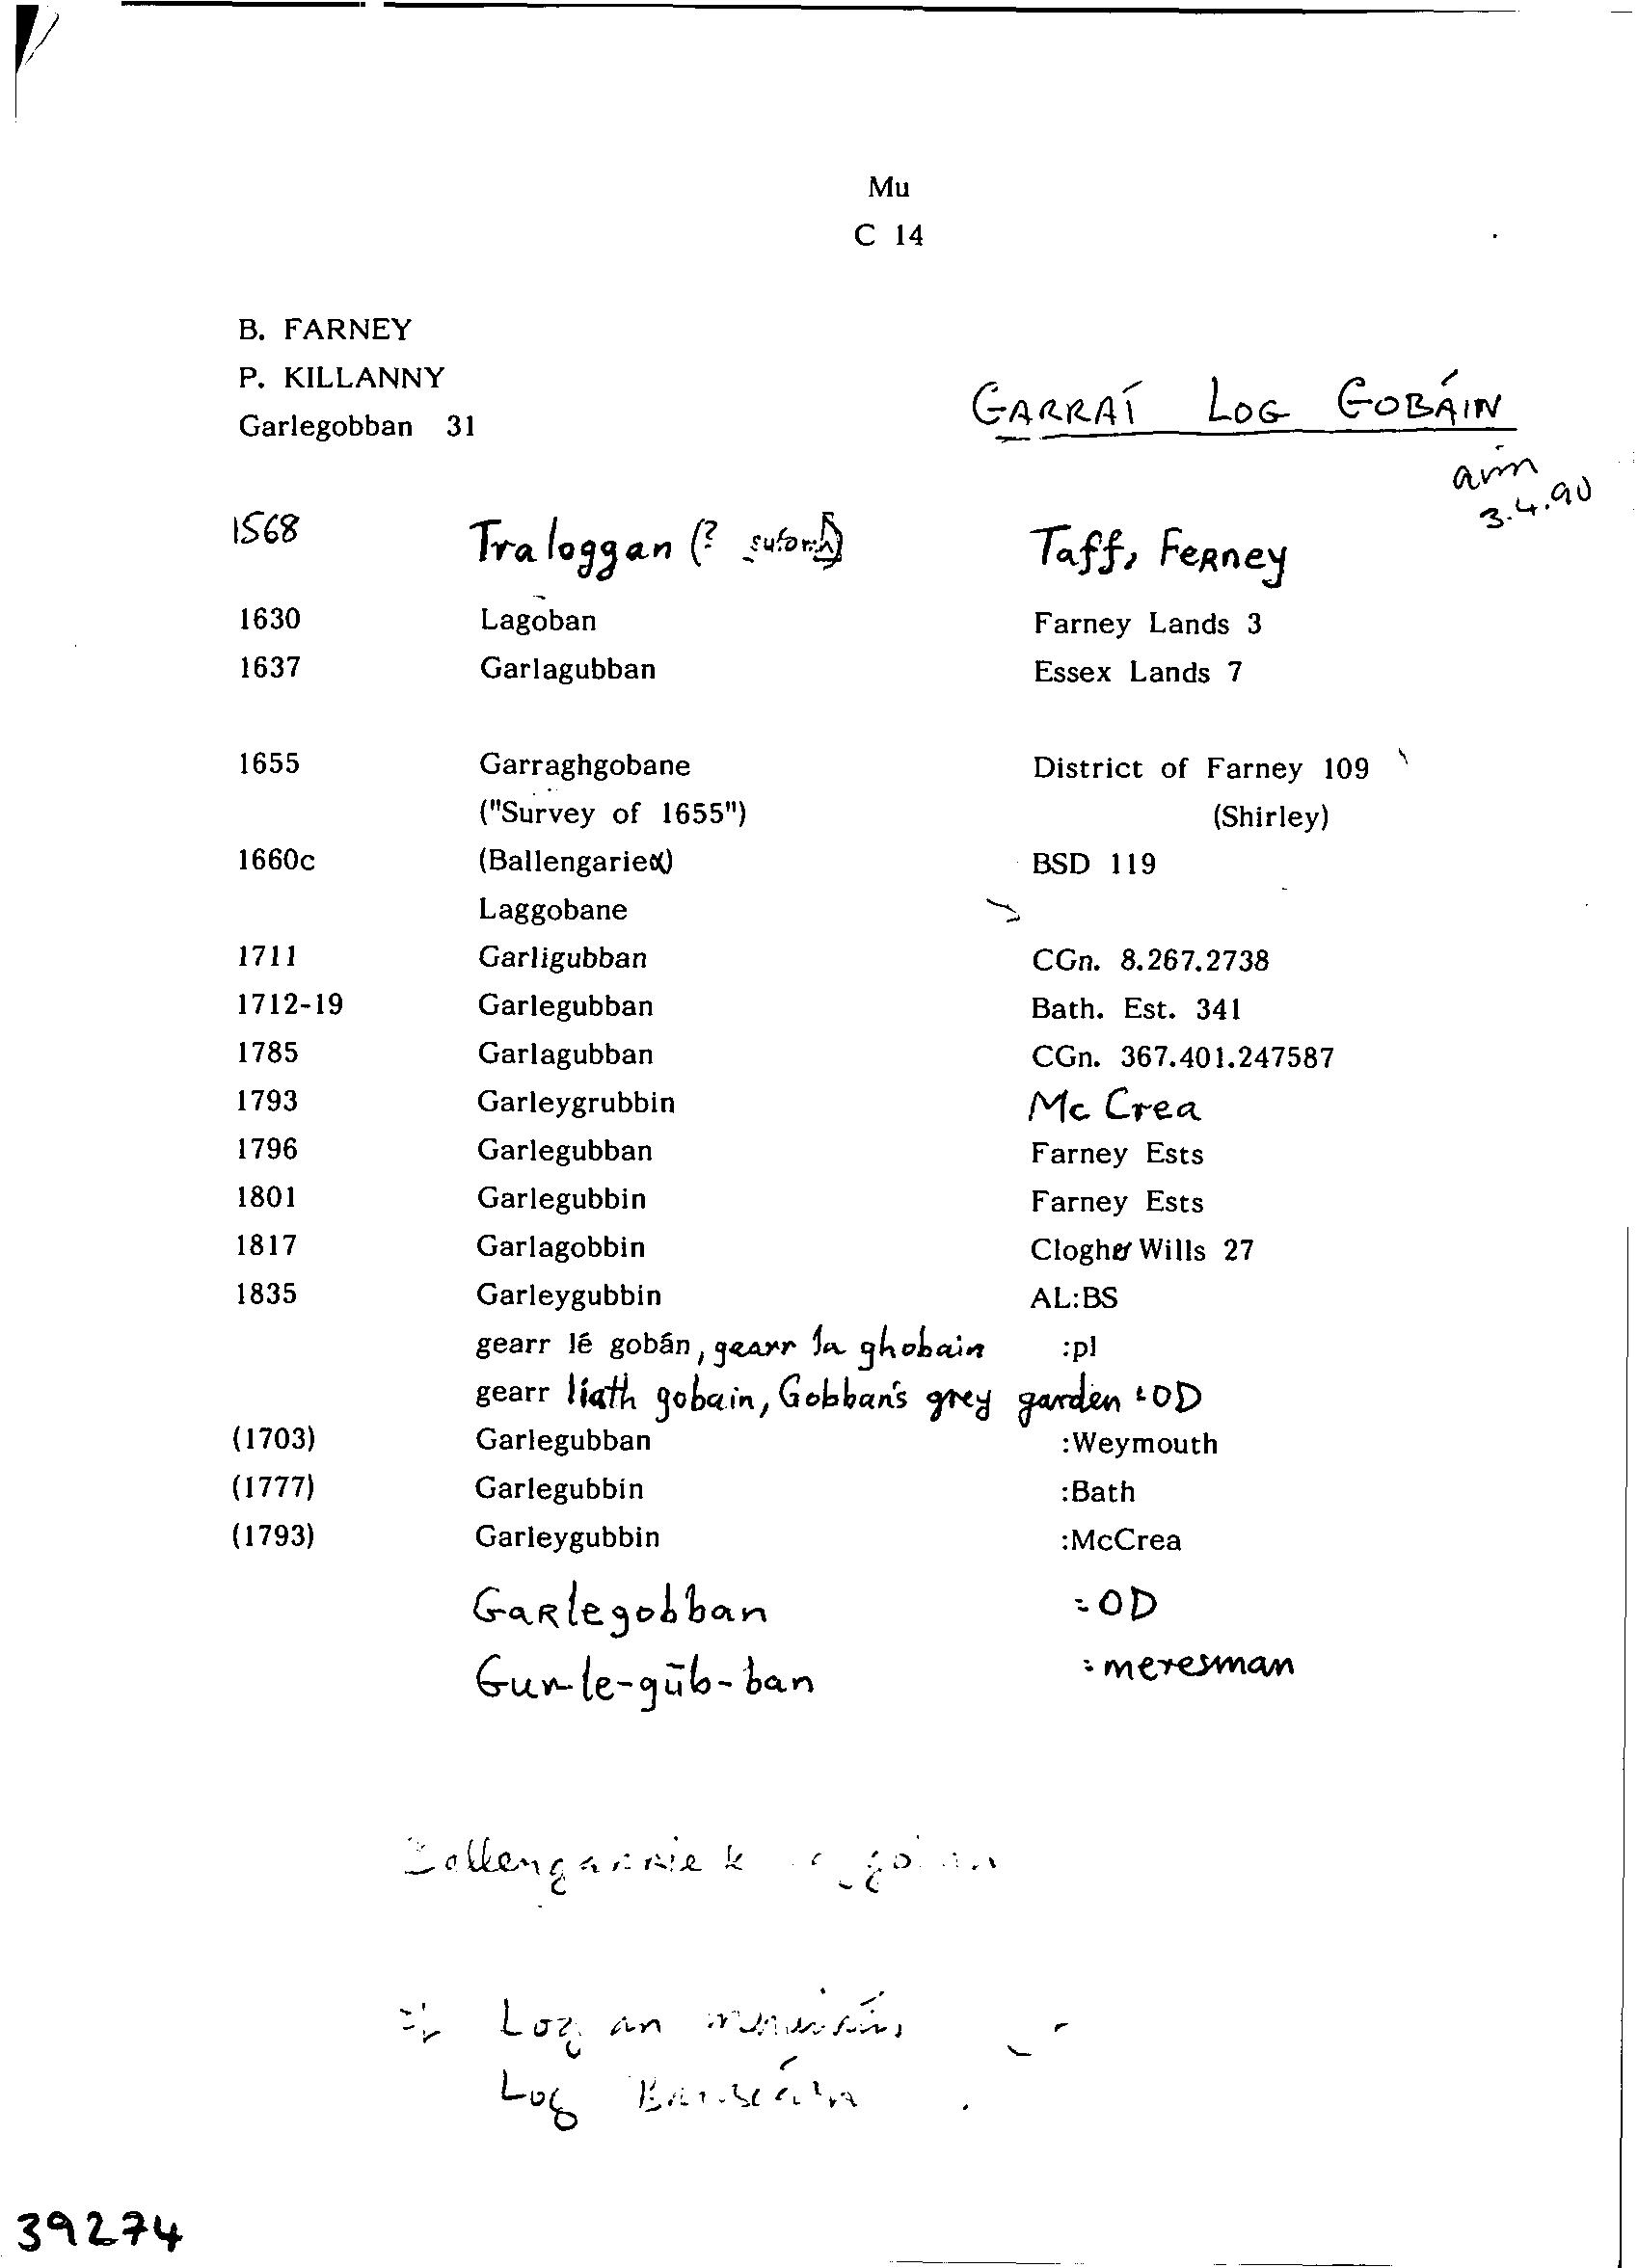 Mu
C 14
B. FARNEY
P. KILLANNY
Garlegobban 31
GARRAÍ LOG GOBÁIN
3.4.90
1568 Traloggan (? Taff, Ferney
1630 Lagoban Farney Lands 3
1637 Garlagubban Essex Lands 7
1655 Garraghgobane District of Farney 109
("Survey of 1655") (Shirley)
1660c (Ballengariek) BSD 119
Laggobane
1711 Garligubban CGn. 8.267.2738
1712-19 Garlegubban Bath. Est. 341
1785 Garlagubban CGn. 367.401.247587
1793 Garleygrubbin Mc Crea
1796 Garlegubban Farney Ests
1801 Garlegubbin Farney Ests
1817 Garlagobbin Clogher Wills 27
1835 Garleygubbin AL:BS
gearr lé gobán, gearr la ghobain :pl
gearr liath gobain, Gobban's grey garden :OD
(1703) Garlegubban :Weymouth
(1777) Garlegubbin :Bath
(1793) Garleygubbin :McCrea
Garlegobban :OD
Gur-le-gūb-ban :meresman
Log an
Log
39274